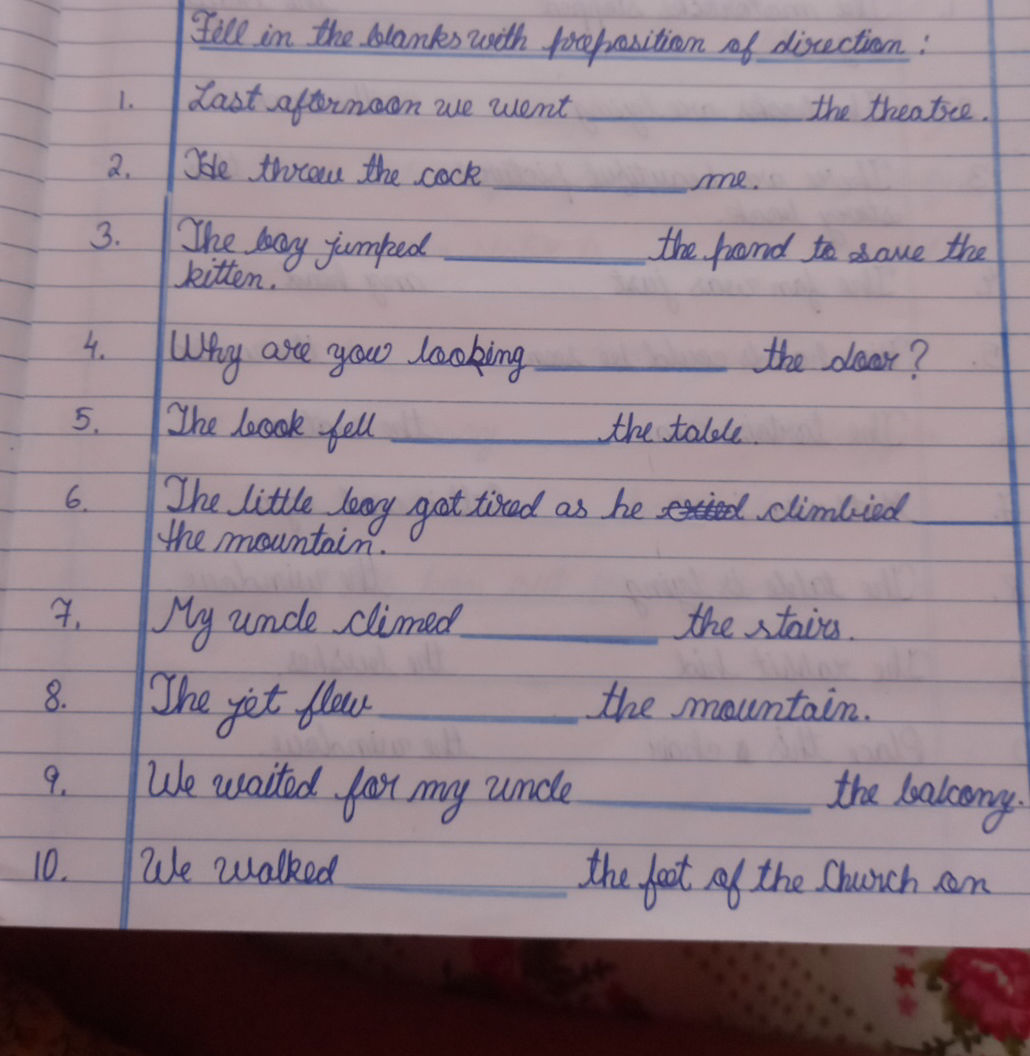 Fill in the blanks with preposition of direction :
1. Last afternoon we went ________ the theatre.
2. He threw the cock ________ me.
3. The boy jumped ________ the pond to save the
kitten.
4. Why are you looking ________ the door?
5. The book fell ________ the table.
6. The little boy got tired as he climbied ________
the mountain.
7. My uncle climed ________ the stairs.
8. The jet flew ________ the mountain.
9. We waited for my uncle ________ the balcony.
10. We walked ________ the foot of the Church on